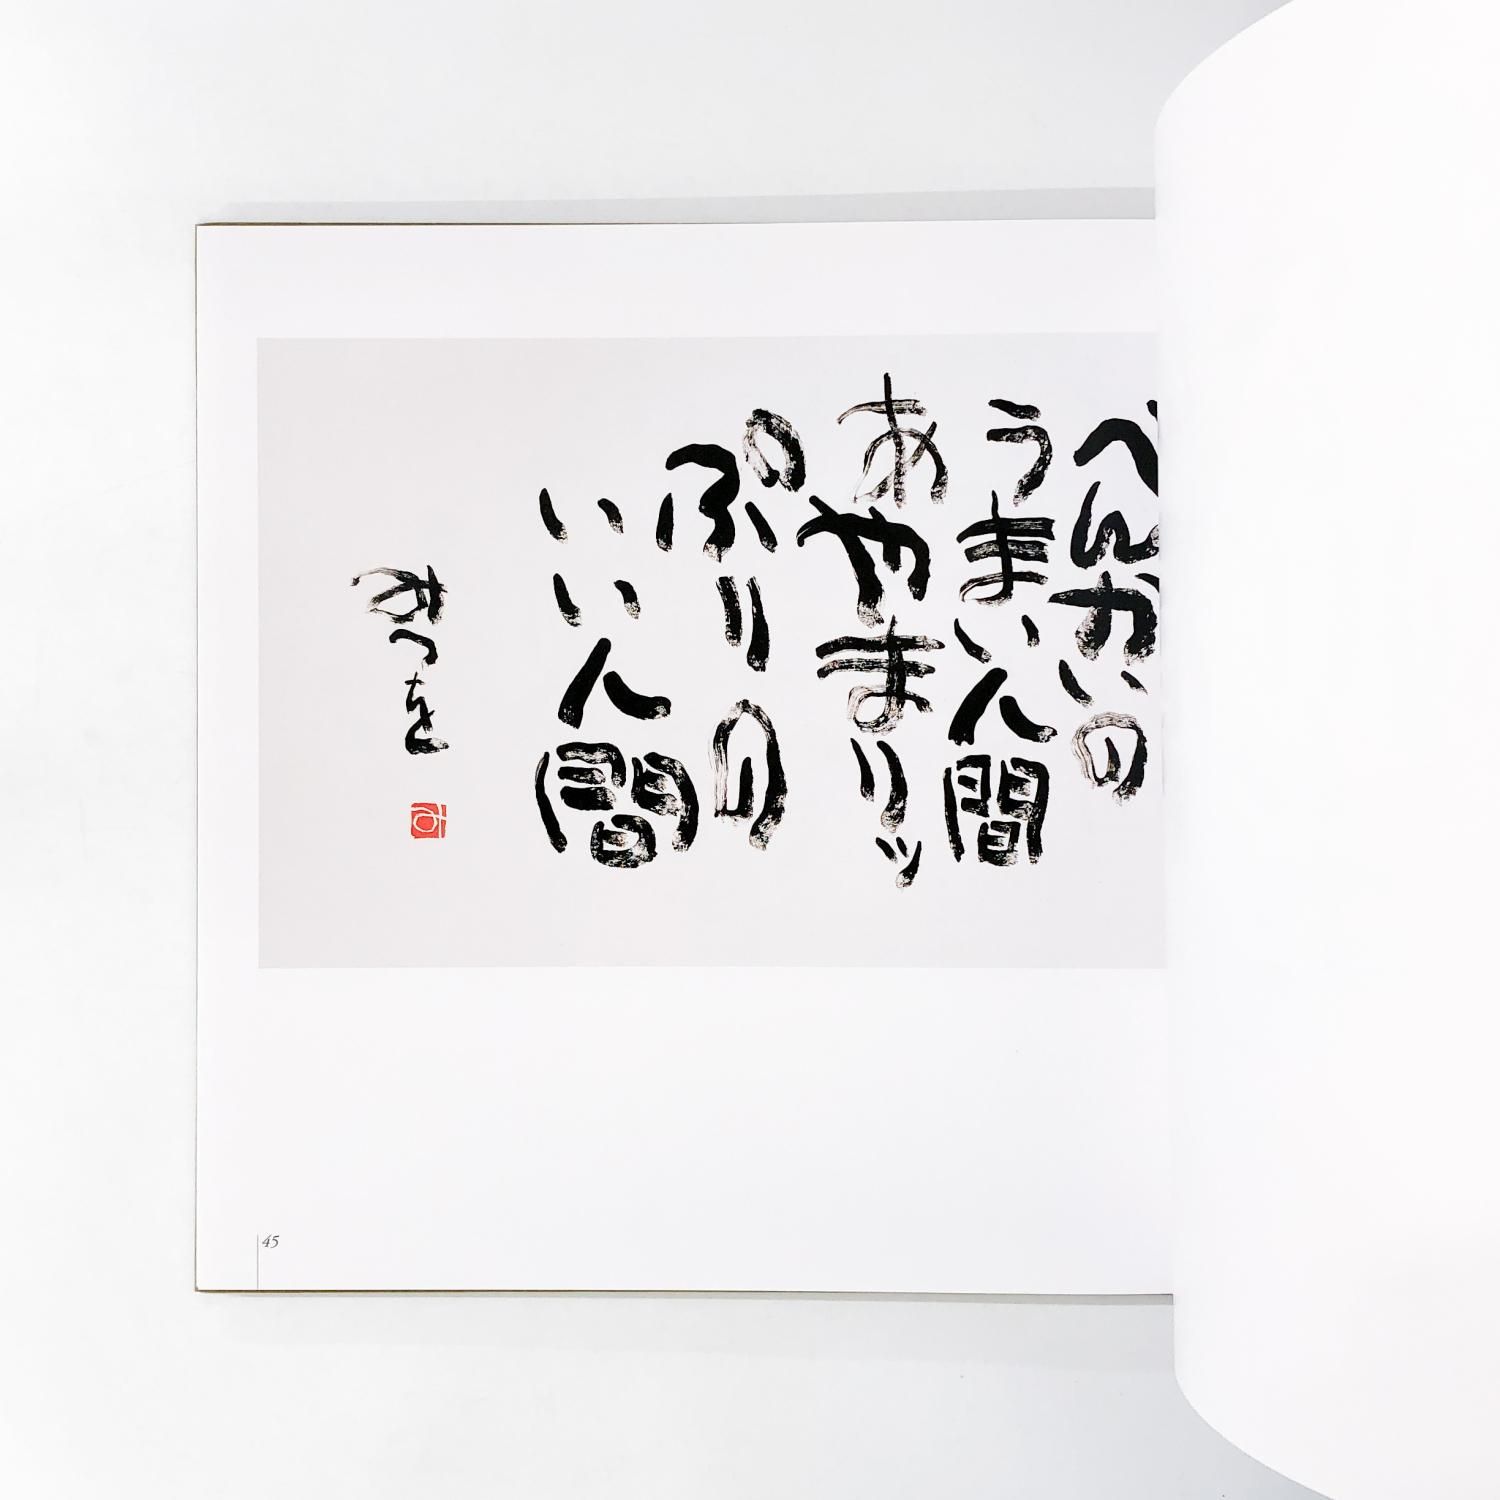 べんかいの
うまい人間
あやまりッ
ぷりの
いい人間
みつを
み
45